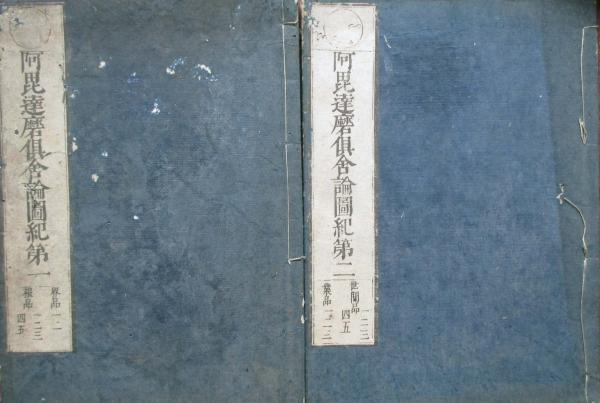 阿毘達磨俱舍論圖紀第一
界品 一二
根品 一二三
四五
阿毘達磨俱舍論圖紀第二
世間品 一二三
四五
業品 一二三